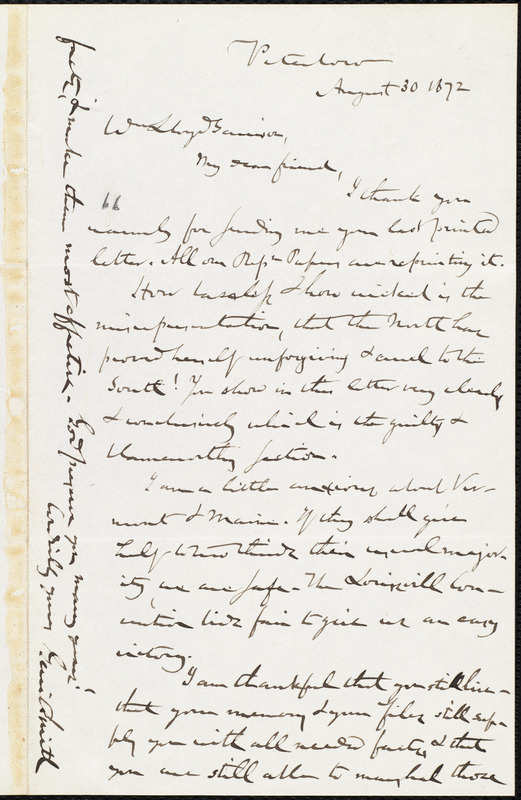 Peterboro
August 30 1872
Wm Lloyd Garrison,
My dear friend,
I thank you
warmly for sending me your last printed
letter. All our Repn Papers are reprinting it.
How baseless & how wicked is the
misrepresentation, that the North has
proved herself unforgiving & cruel to the
South! You show in this letter very clearly
& conclusively which is the guilty &
blameworthy section.
I am a little anxious about Ver-
mont & Maine. If they shall give
half to two thirds their usual major-
ity, we are safe. The Louisvill Con-
vention bids fair to give us an easy
victory.
I am thankful that you still live -
that your memory & your files still sup-
ply you with all needed facts, & that
you are still able to marshal those
facts, & make them most effective. God preserve you many years!
Cordially yours Gerrit Smith